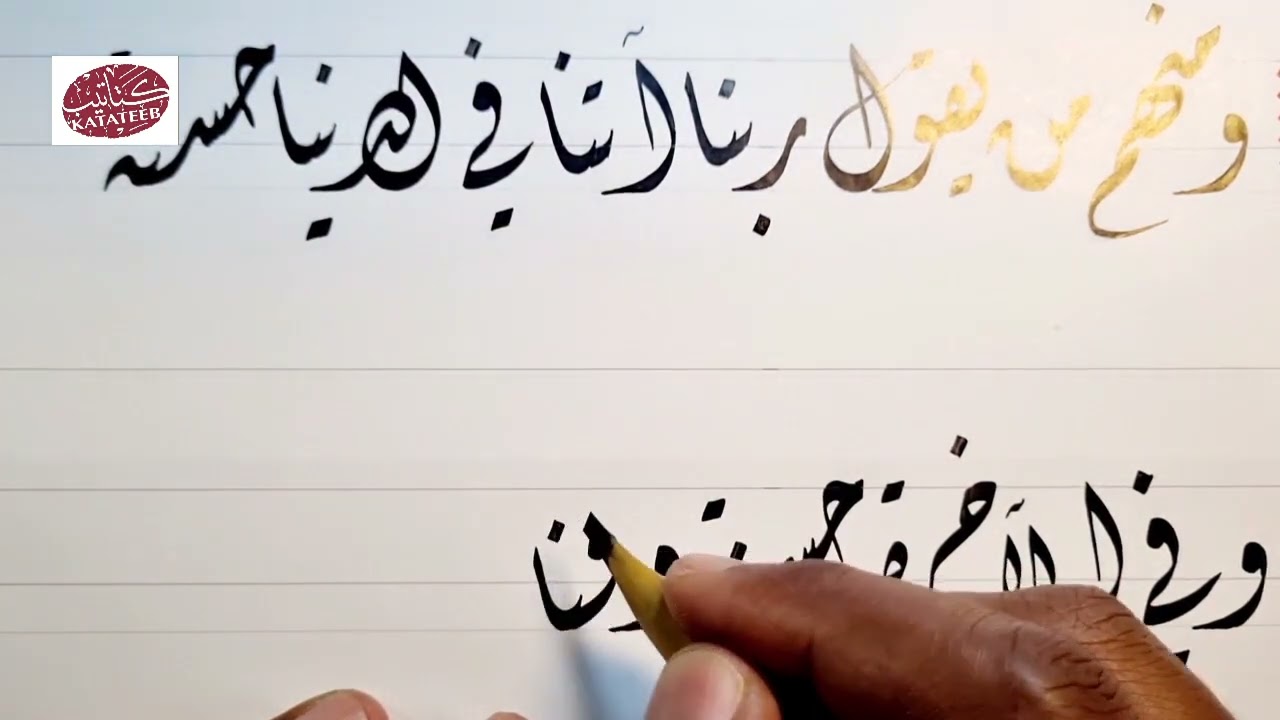 كتاتيب
KATATEEB
ومنهم من يقول ربنا آتنا في الدنيا حسنة
وفي الآخرة حسنة وقنا